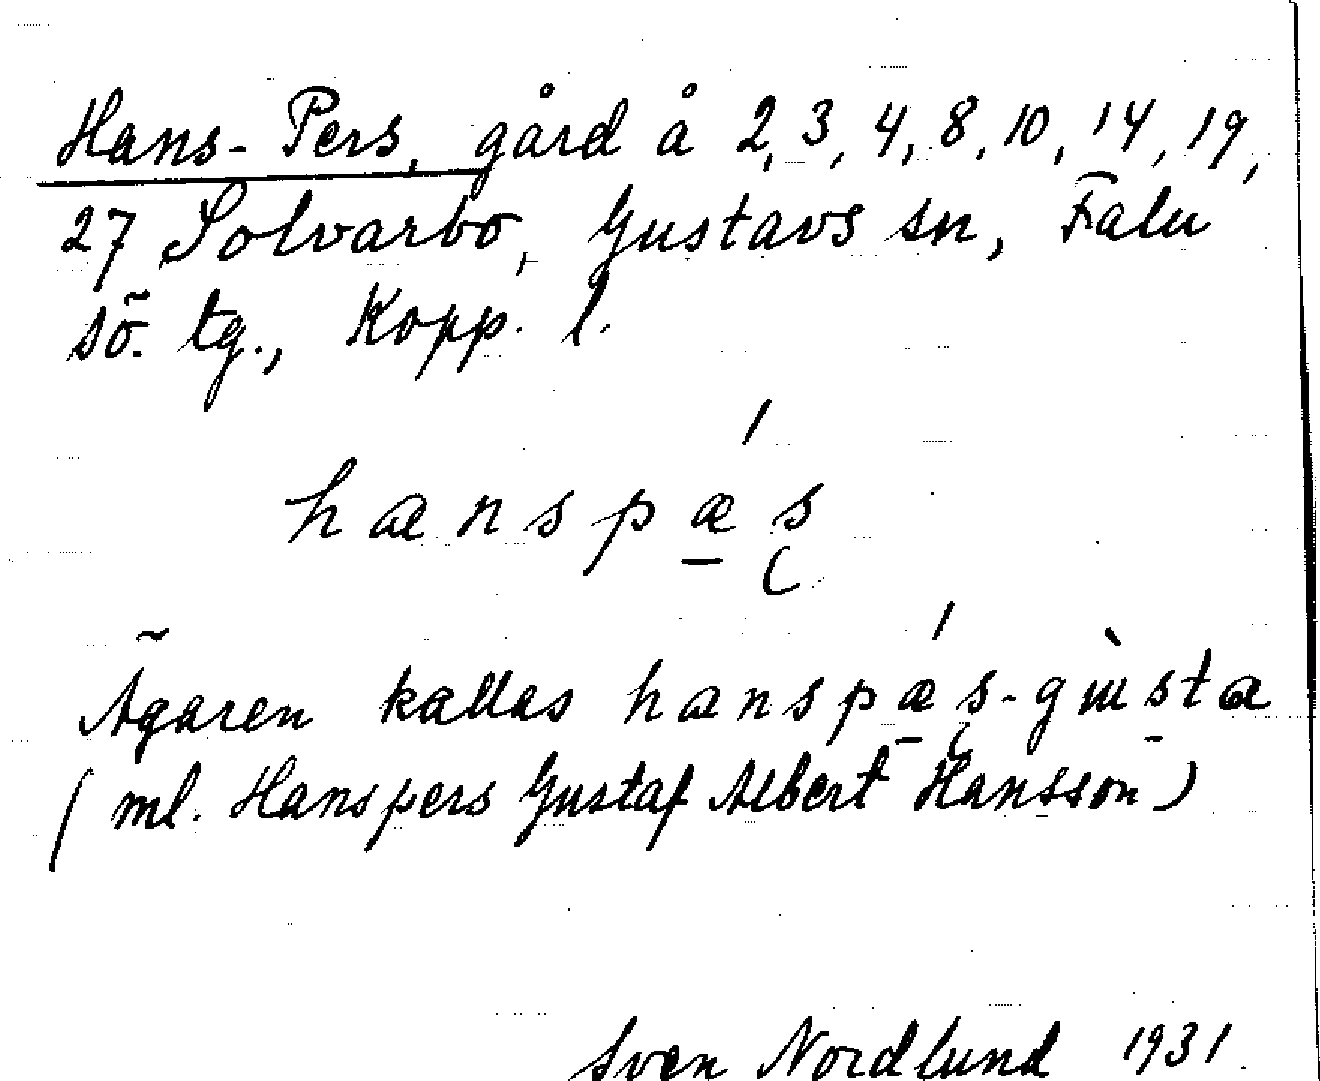 Hans-Pers, gård å 2, 3, 4, 8, 10, 14, 19,
27 Solvarbo, Gustavs sn, Falu
sö. tg., Kopp. l.
hanspǽ̲s
Ägaren kallas hanspǽ̲s-gùsta
(ml. Hanspers Gustaf Albert Hansson)
Sven Nordlund 1931.